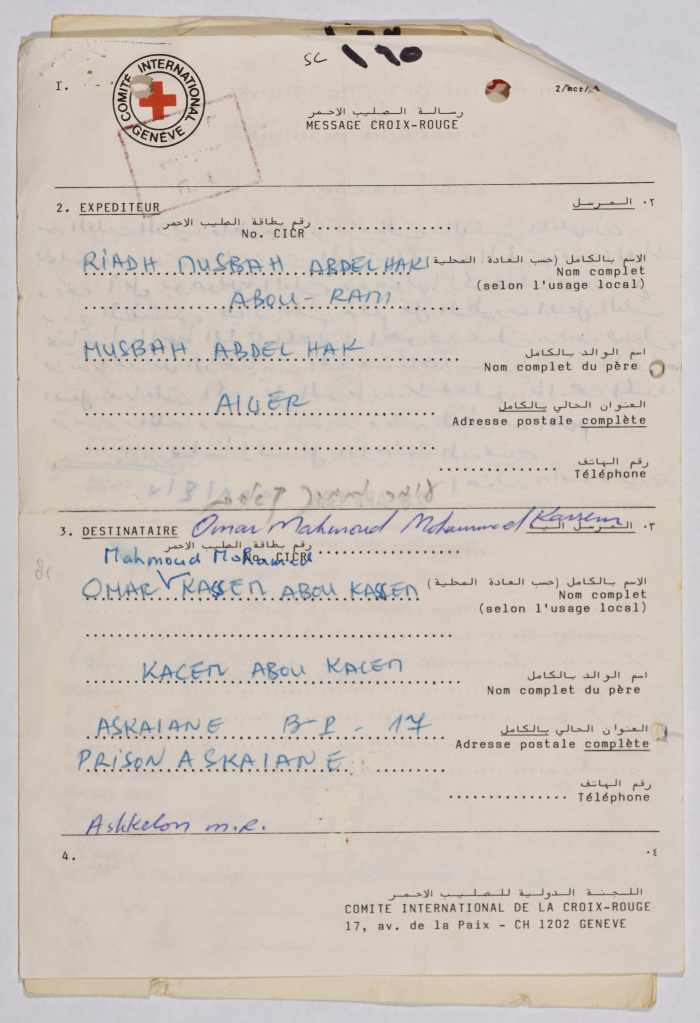 SC 190
1.
COMITÉ INTERNATIONAL GENÈVE
2/mcr/
رسالة الصليب الاحمر
MESSAGE CROIX-ROUGE
2. EXPEDITEUR
٢. المرسل
رقم بطاقة الصليب الاحمر
No. CICR
RIADH MUSBAH ABDELHAK
الاسم بالكامل (حسب العادة المحلية)
Nom complet
(selon l'usage local)
ABOU-RAMI
MUSBAH ABDEL HAK
اسم الوالد بالكامل
Nom complet du père
العنوان الحالي بالكامل
ALGER
Adresse postale complète
رقم الهاتف
Téléphone
3. DESTINATAIRE Omar Mahmoud Mohammed Kassem
٣. المرسل اليه
رقم بطاقة الصليب الاحمر
No. CICR
Mahmoud Mohamed
OMAR KASSEM ABOU KASSEM
الاسم بالكامل (حسب العادة المحلية)
Nom complet
(selon l'usage local)
KACEM ABOU KACEM
اسم الوالد بالكامل
Nom complet du père
ASKALANE B-P - 17
العنوان الحالي بالكامل
Adresse postale complète
PRISON ASKALANE
رقم الهاتف
Téléphone
Ashkelon m.r.
4.
٤.
اللجنة الدولية للصليب الاحمر
COMITE INTERNATIONAL DE LA CROIX-ROUGE
17, av. de la Paix - CH 1202 GENEVE